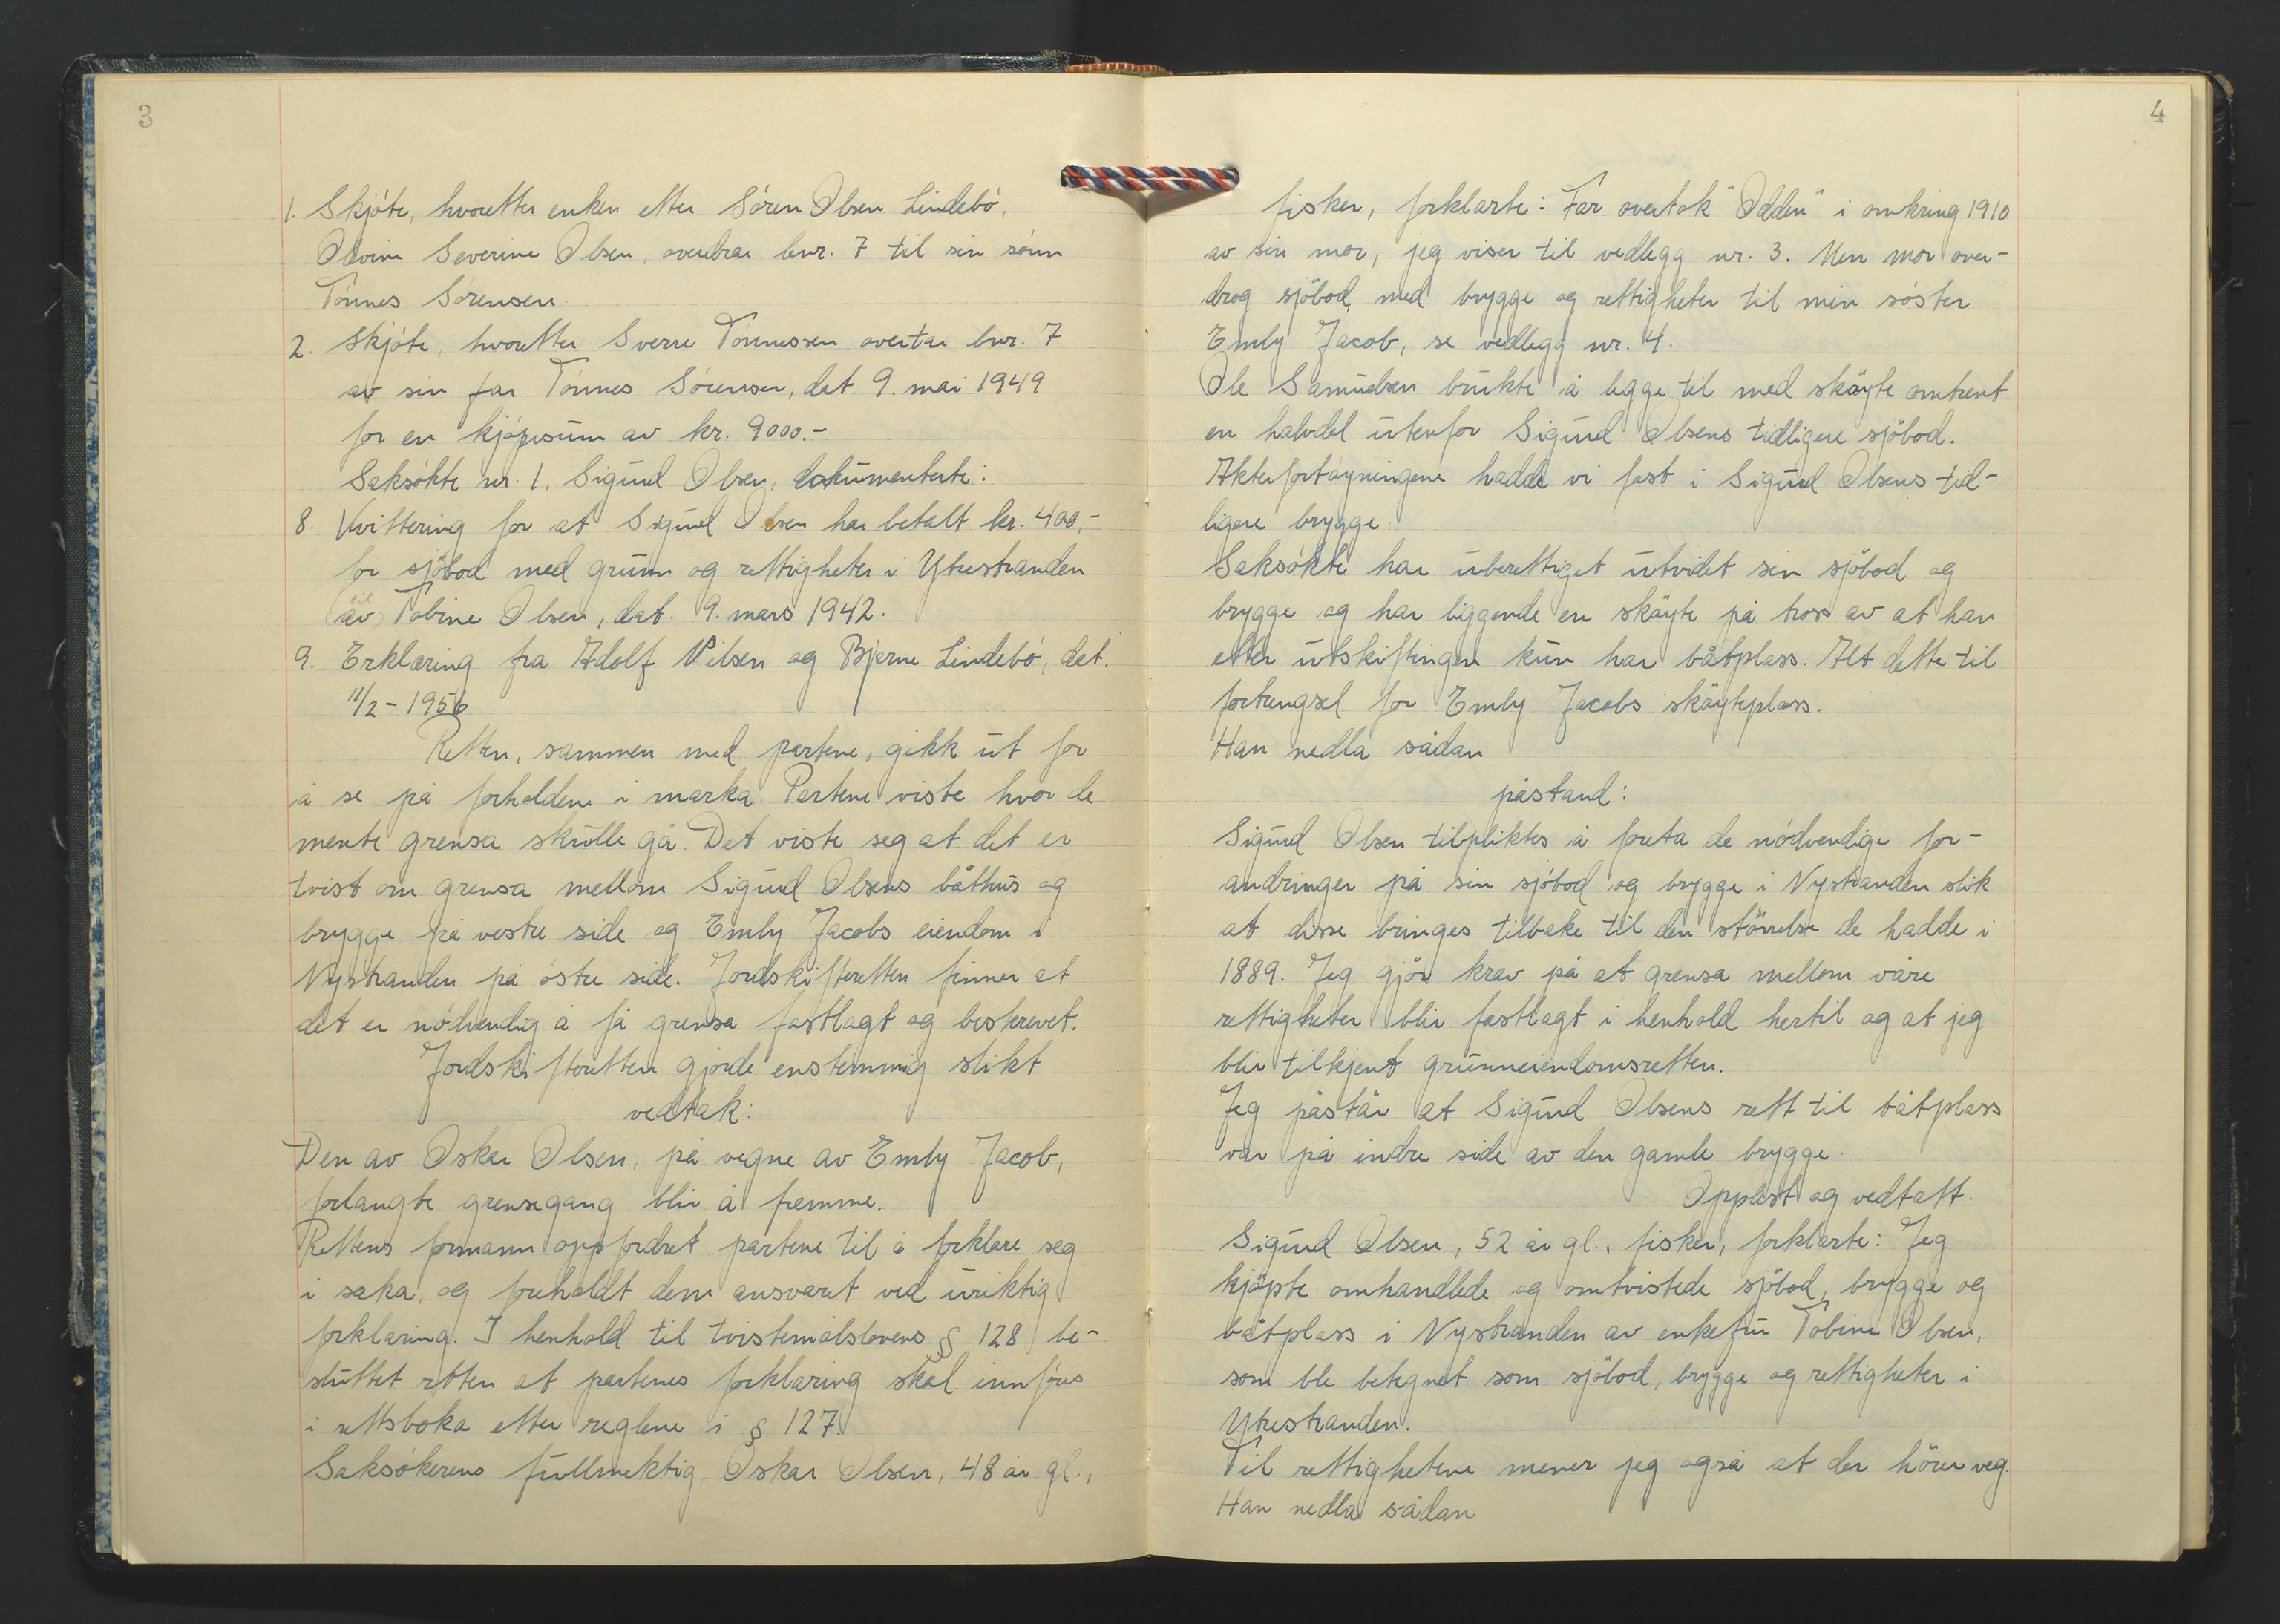 3
1. Skjöte, hvoretter enken etter Sören Olsen Lindebö,
Severine Olsen, overdrar bnr. 7 til sin sönn
Tönnes Sörensen.
2. Skjöte, hvoretter Sverre Tönnessen overtar bnr. 7
av sin far Tönnes Sörensen, dat. 9. mai 1949
for en kjöpesum av kr. 9000.-
Saksökte nr. 1, Sigurd Olsen, dokumenterte:
8. Kvittering for at Sigurd Olsen har betalt kr. 400,-
for sjöbod med grunn og rettigheter i Ytrestranden
(av) til Tobine Olsen, dat. 9. mars 1942.
9. Erklæring fra Adolf Nilsen og Bjarne Lindebö, dat.
11/2 - 1956
Retten, sammen med partene, gikk ut for
å se på forholdene i marka. Partene viste hvor de
mente grensa skulle gå. Det viste seg at det er
tvist om grensa mellom Sigurd Olsens båthus og
brygge på vestre side og Emly Jacobs eiendom i
Nystranden på östre side. Jordskifteretten finner at
det er nödvendig å få grensa fastlagt og beskrevet.
Jordskifteretten gjorde enstemmig slikt
vedtak:
Den av Oskar Olsen, på vegne av Emly Jacob,
forlangte grensegang blir å fremme.
Rettens formann oppfordret partene til å forklare seg
i saka, og foreholdt dem ansvaret ved uriktig
forklaring. I henhold til tvistemålslovens § 128 be-
sluttet retten at partenes forklaring skal innföres
i rettsboka etter reglene i § 127.
Saksökerens fullmektig Oskar Olsen, 48 år gl.,
4
fisker, forklarte: Far overtok "Odden" i omkring 1910
av sin mor, jeg viser til vedlegg nr. 3. Men mor over-
drog sjöbod med brygge og rettigheter til min söster
Emly Jacob, se vedlegg nr. 4.
Ole Samuelsen brukte å legge til med sköyte omtrent
en halvdel utenfor Sigurd Olsens tidligere sjöbod.
Akterfortöyningene hadde vi fast i Sigurd Olsens tid-
ligere brygge.
Saksökte har uberettiget utvidet sin sjöbod og
brygge og har liggende en sköyte på tross av at han
etter utskiftingen kun har båtplass. Alt dette til
fortrengsel for Emly Jacobs sköyteplass.
Han nedla sådan
påstand:
Sigurd Olsen tilpliktes å foreta de nödvendige for-
andringer på sin sjöbod og brygge i Nystranden slik
at disse bringes tilbake til den störrelse de hadde i
1889. Jeg gjör krav på at grensa mellom våre
rettigheter blir fastlagt i henhold hertil og at jeg
blir tilkjent grunneiendomsretten.
Jeg påstår at Sigurd Olsens rett til båtplass
var på indre side av den gamle brygge.
Opplest og vedtatt.
Sigurd Olsen, 52 år gl., fisker, forklarte: Jeg
kjöpte omhandlede og omtvistede sjöbod, brygge og
båtplass i Nystranden av enkefru Tobine Olsen,
som ble betegnet som sjöbod, brygge og rettigheter i
Ytrestranden.
Til rettighetene mener jeg også at der hörer veg.
Han nedla sådan